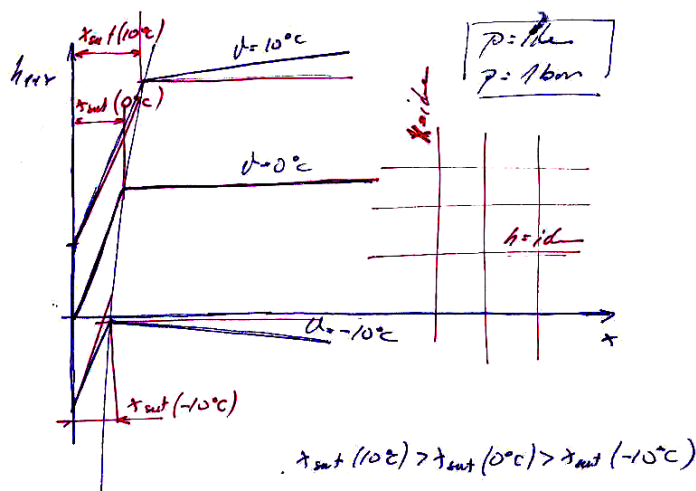 x_sat (10°C)
h_1+x
x_sat (0°C)
ϑ=10°C
p=idem
p=1bar
x=idem
ϑ=0°C
h=idem
x
ϑ=-10°C
x_sat (-10°C)
x_sat (10°C) > x_sat (0°C) > x_sat (-10°C)